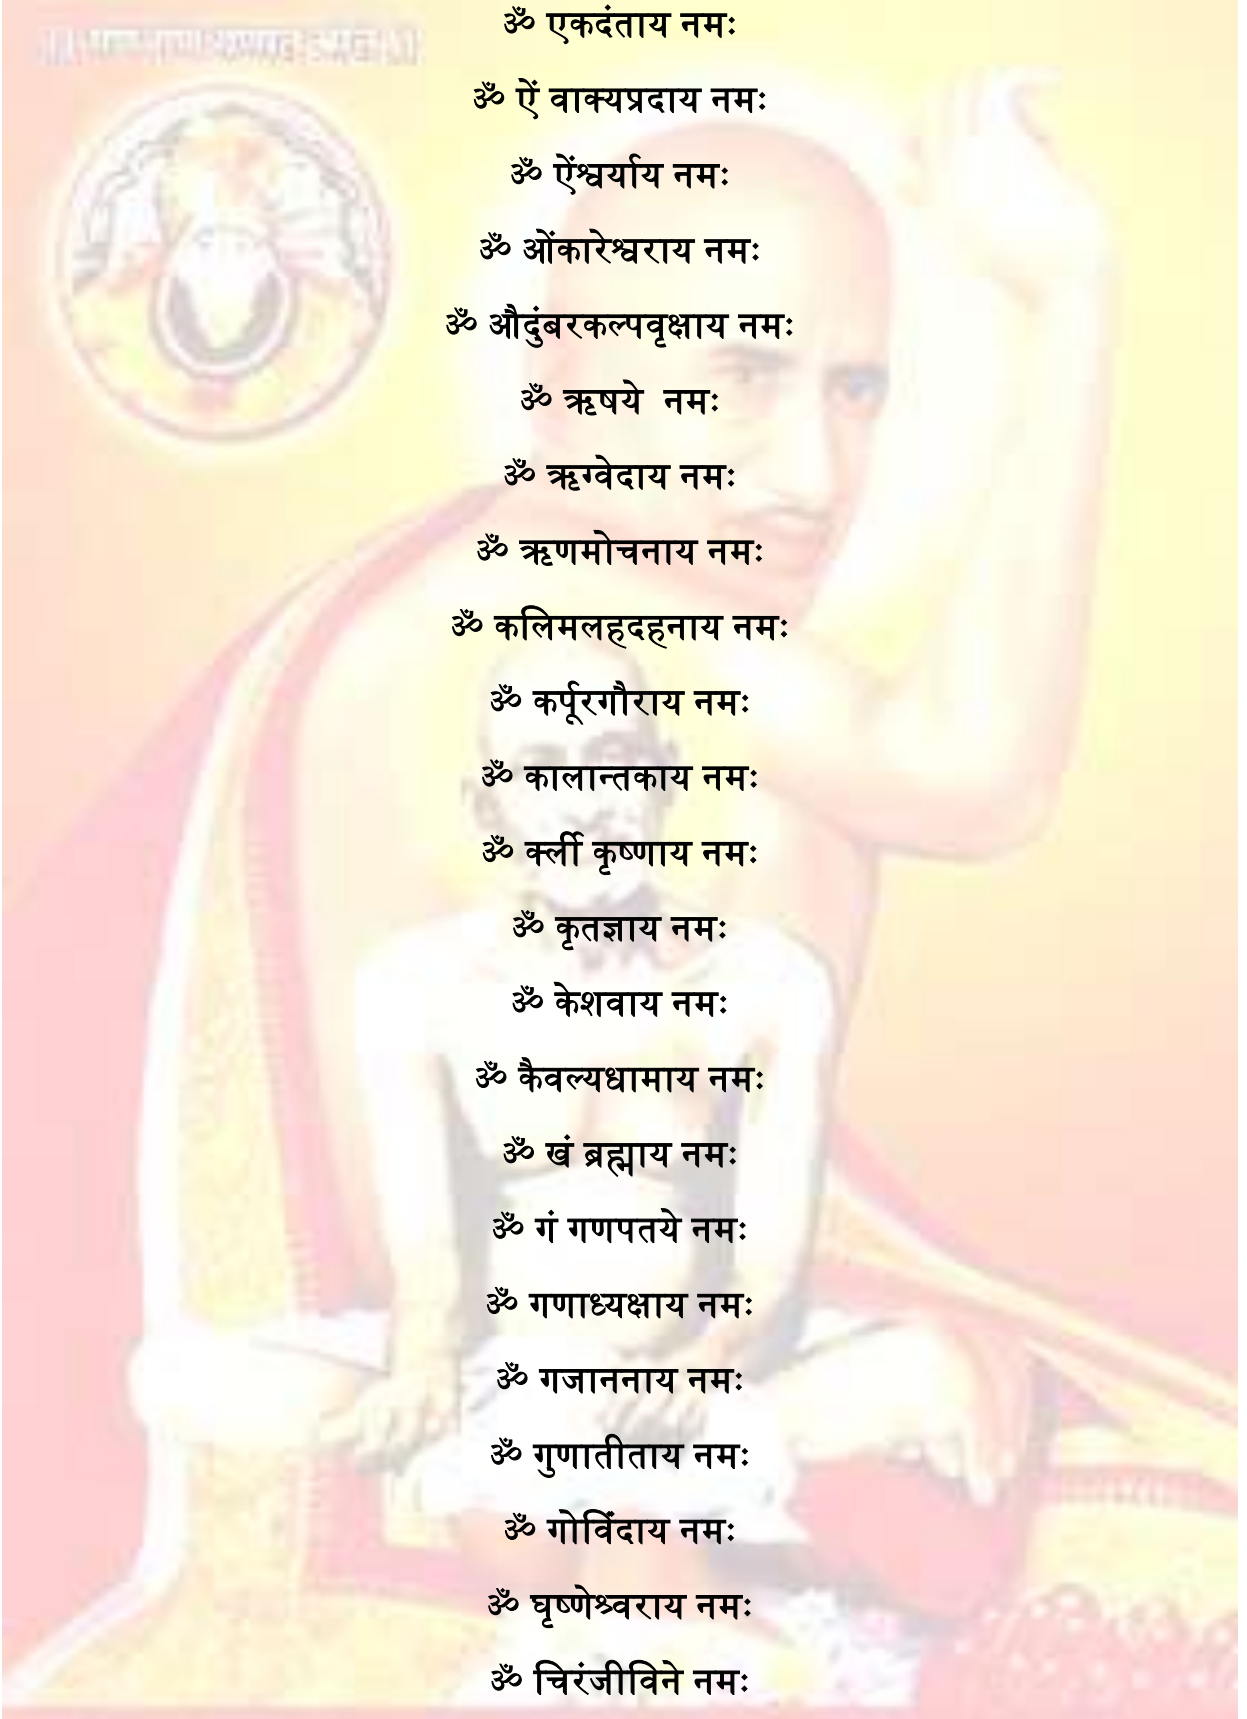 ॐ एकदंताय नमः
ॐ ऐं वाक्यप्रदाय नमः
ॐ ऐंश्वर्याय नमः
ॐ ओंकारेश्वराय नमः
ॐ औदुंबरकल्पवृक्षाय नमः
ॐ ऋषये  नमः
ॐ ऋग्वेदाय नमः
ॐ ऋणमोचनाय नमः
ॐ कलिमलहदहनाय नमः
ॐ कर्पूरगौराय नमः
ॐ कालान्तकाय नमः
ॐ र्क्ली कृष्णाय नमः
ॐ कृतज्ञाय नमः
ॐ केशवाय नमः
ॐ कैवल्यधामाय नमः
ॐ खं ब्रह्माय नमः
ॐ गं गणपतये नमः
ॐ गणाध्यक्षाय नमः
ॐ गजाननाय नमः
ॐ गुणातीताय नमः
ॐ गोविंदाय नमः
ॐ घृष्णेश्र्वराय नमः
ॐ चिरंजीविने नमः